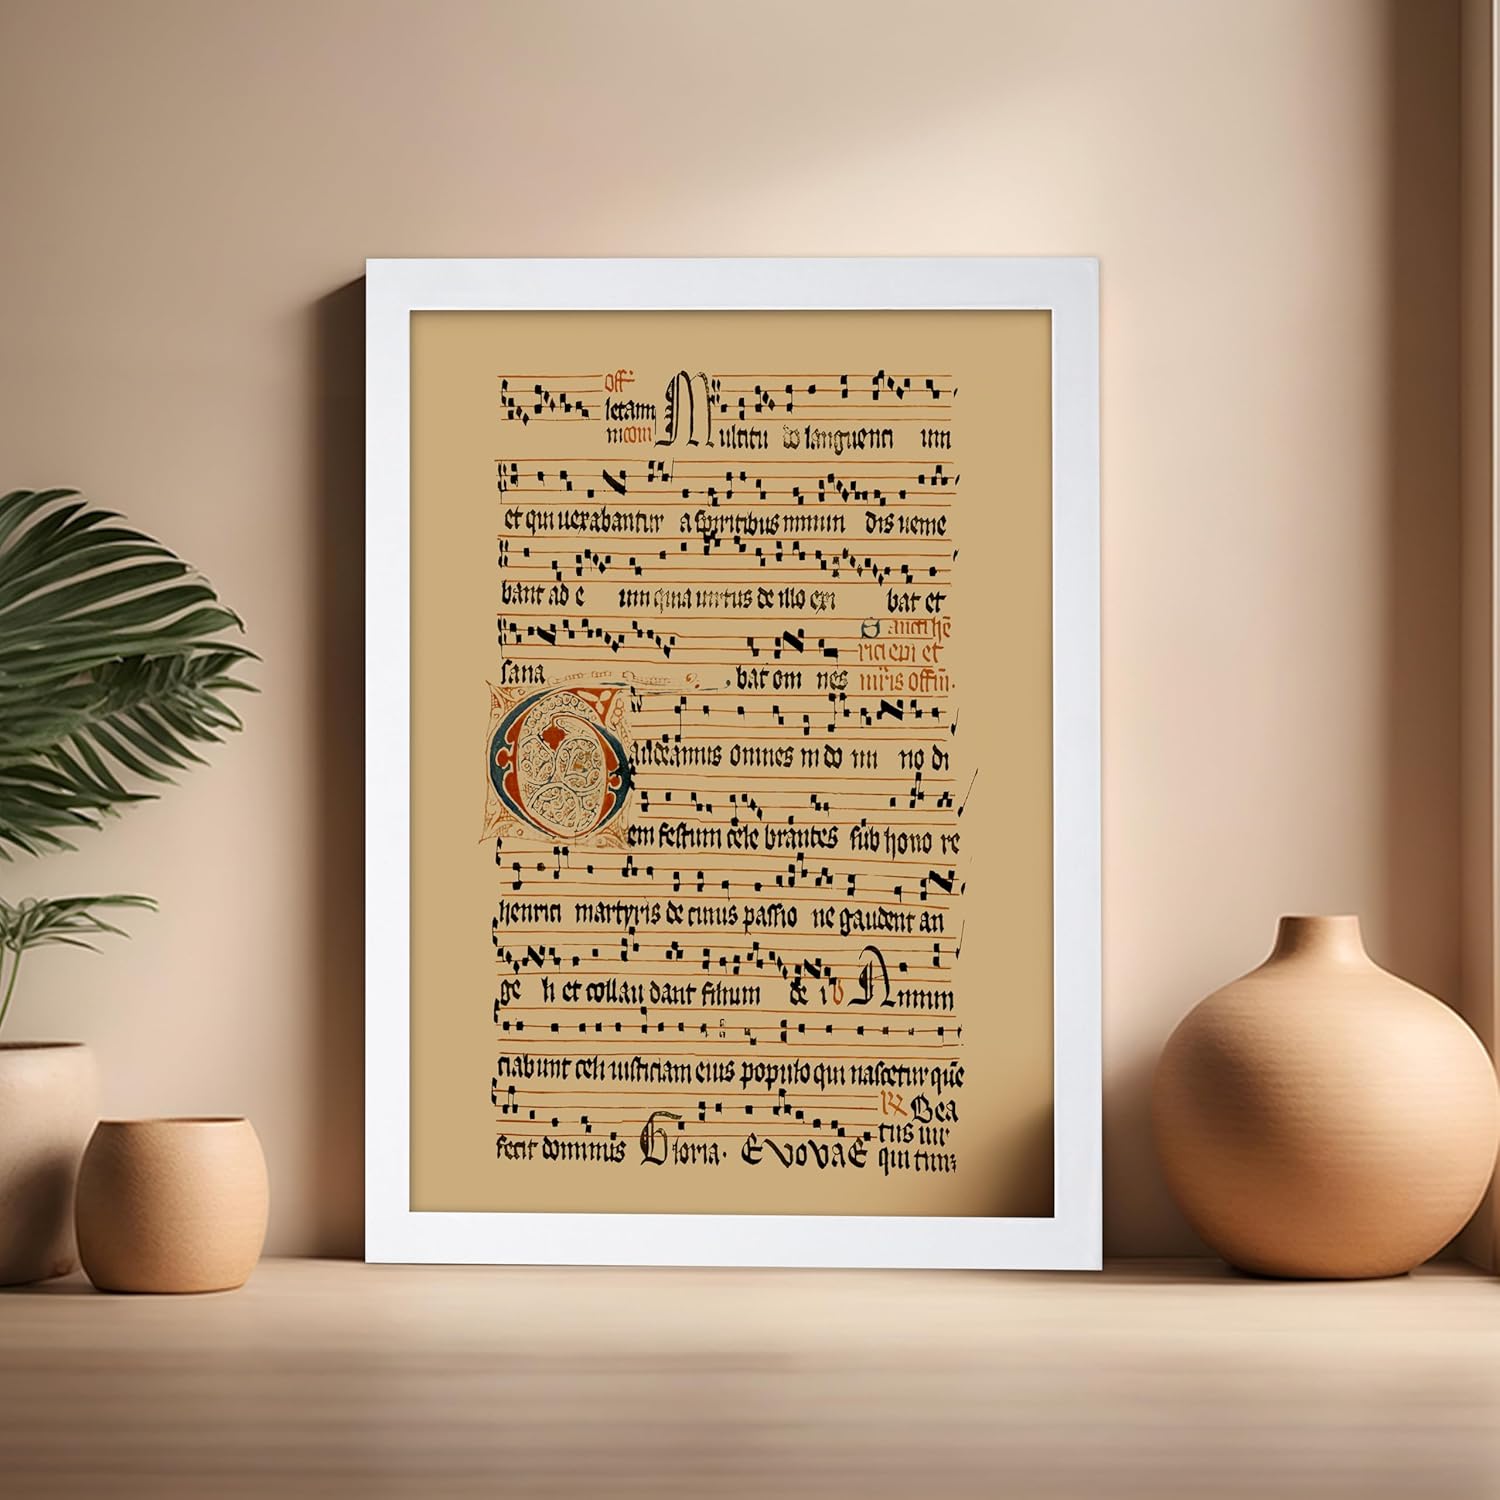 off
letam
m com Multitu do languenci um
et qui uexabantur a spiritibus inmun dis uenie
bant ad e um quia uirtus de illo exi bat et
Sancti he
rici epi et
sana bat om nes mris offm.
Gaudeamus omnes in do mi no di
em festum cele brantes sub hono re
henrici martyris de cuius passio ne gaudent an
ge li et collau dant filium de i Annun
ciabunt celi iusticiam eius populo qui nascetur que
Bea
tus uir
fecit dominus Gloria. EVOVAE qui tim